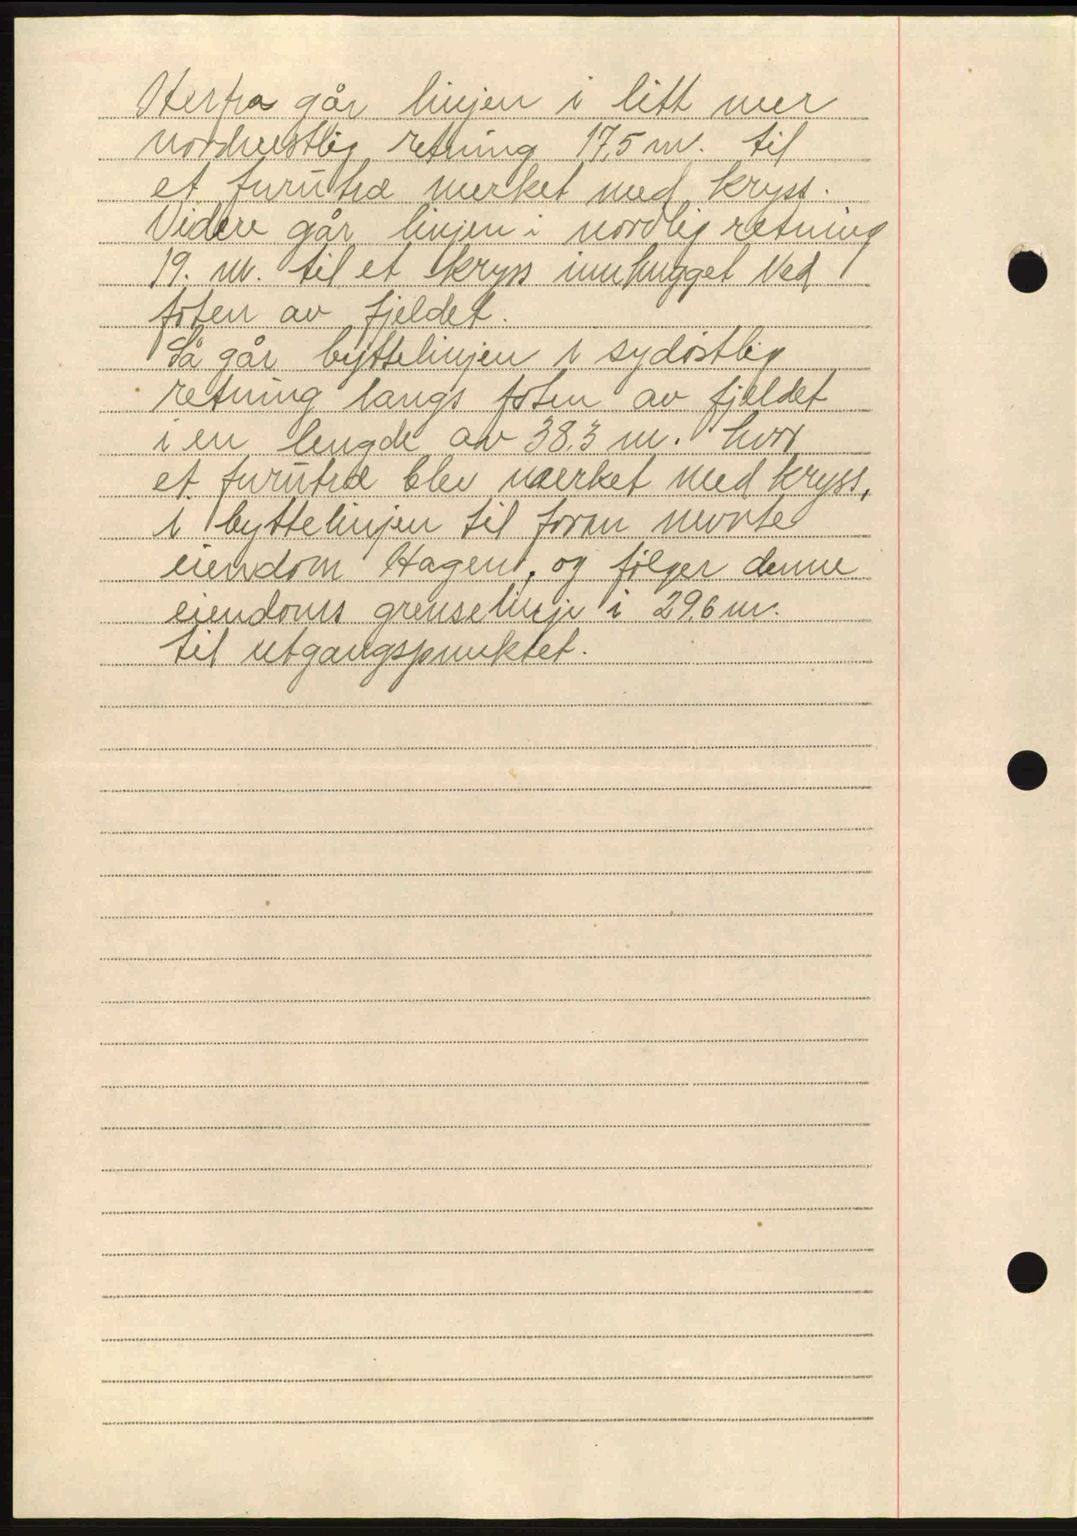 Herfra går linjen i litt mer
nordvestlig retning 17,5 m. til
et furutræ merket med kryss.
Videre går linjen i nordlig retning
19. m. til et kryss innhugget ved
foten av fjeldet.
Så går byttelinjen i sydöstlig
retning langs foten av fjeldet
i en lengde av 38,3 m. hvor
et furutræ blev merket med kryss,
i byttelinjen til foran nevnte
eiendom Hagen, og fölger denne
eiendoms grenselinje i 29,6 m.
til utgangspunktet.